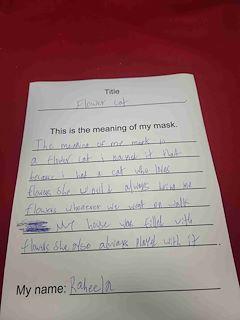 Title
Flower cat
This is the meaning of my mask.
The meaning of my mask is
a flower cat i named it that
because i had a cat who loves
flowers she would always bring me
flowers whenever we went on walks
my house was filled with
flowers she also always played with it
My name: Raheela